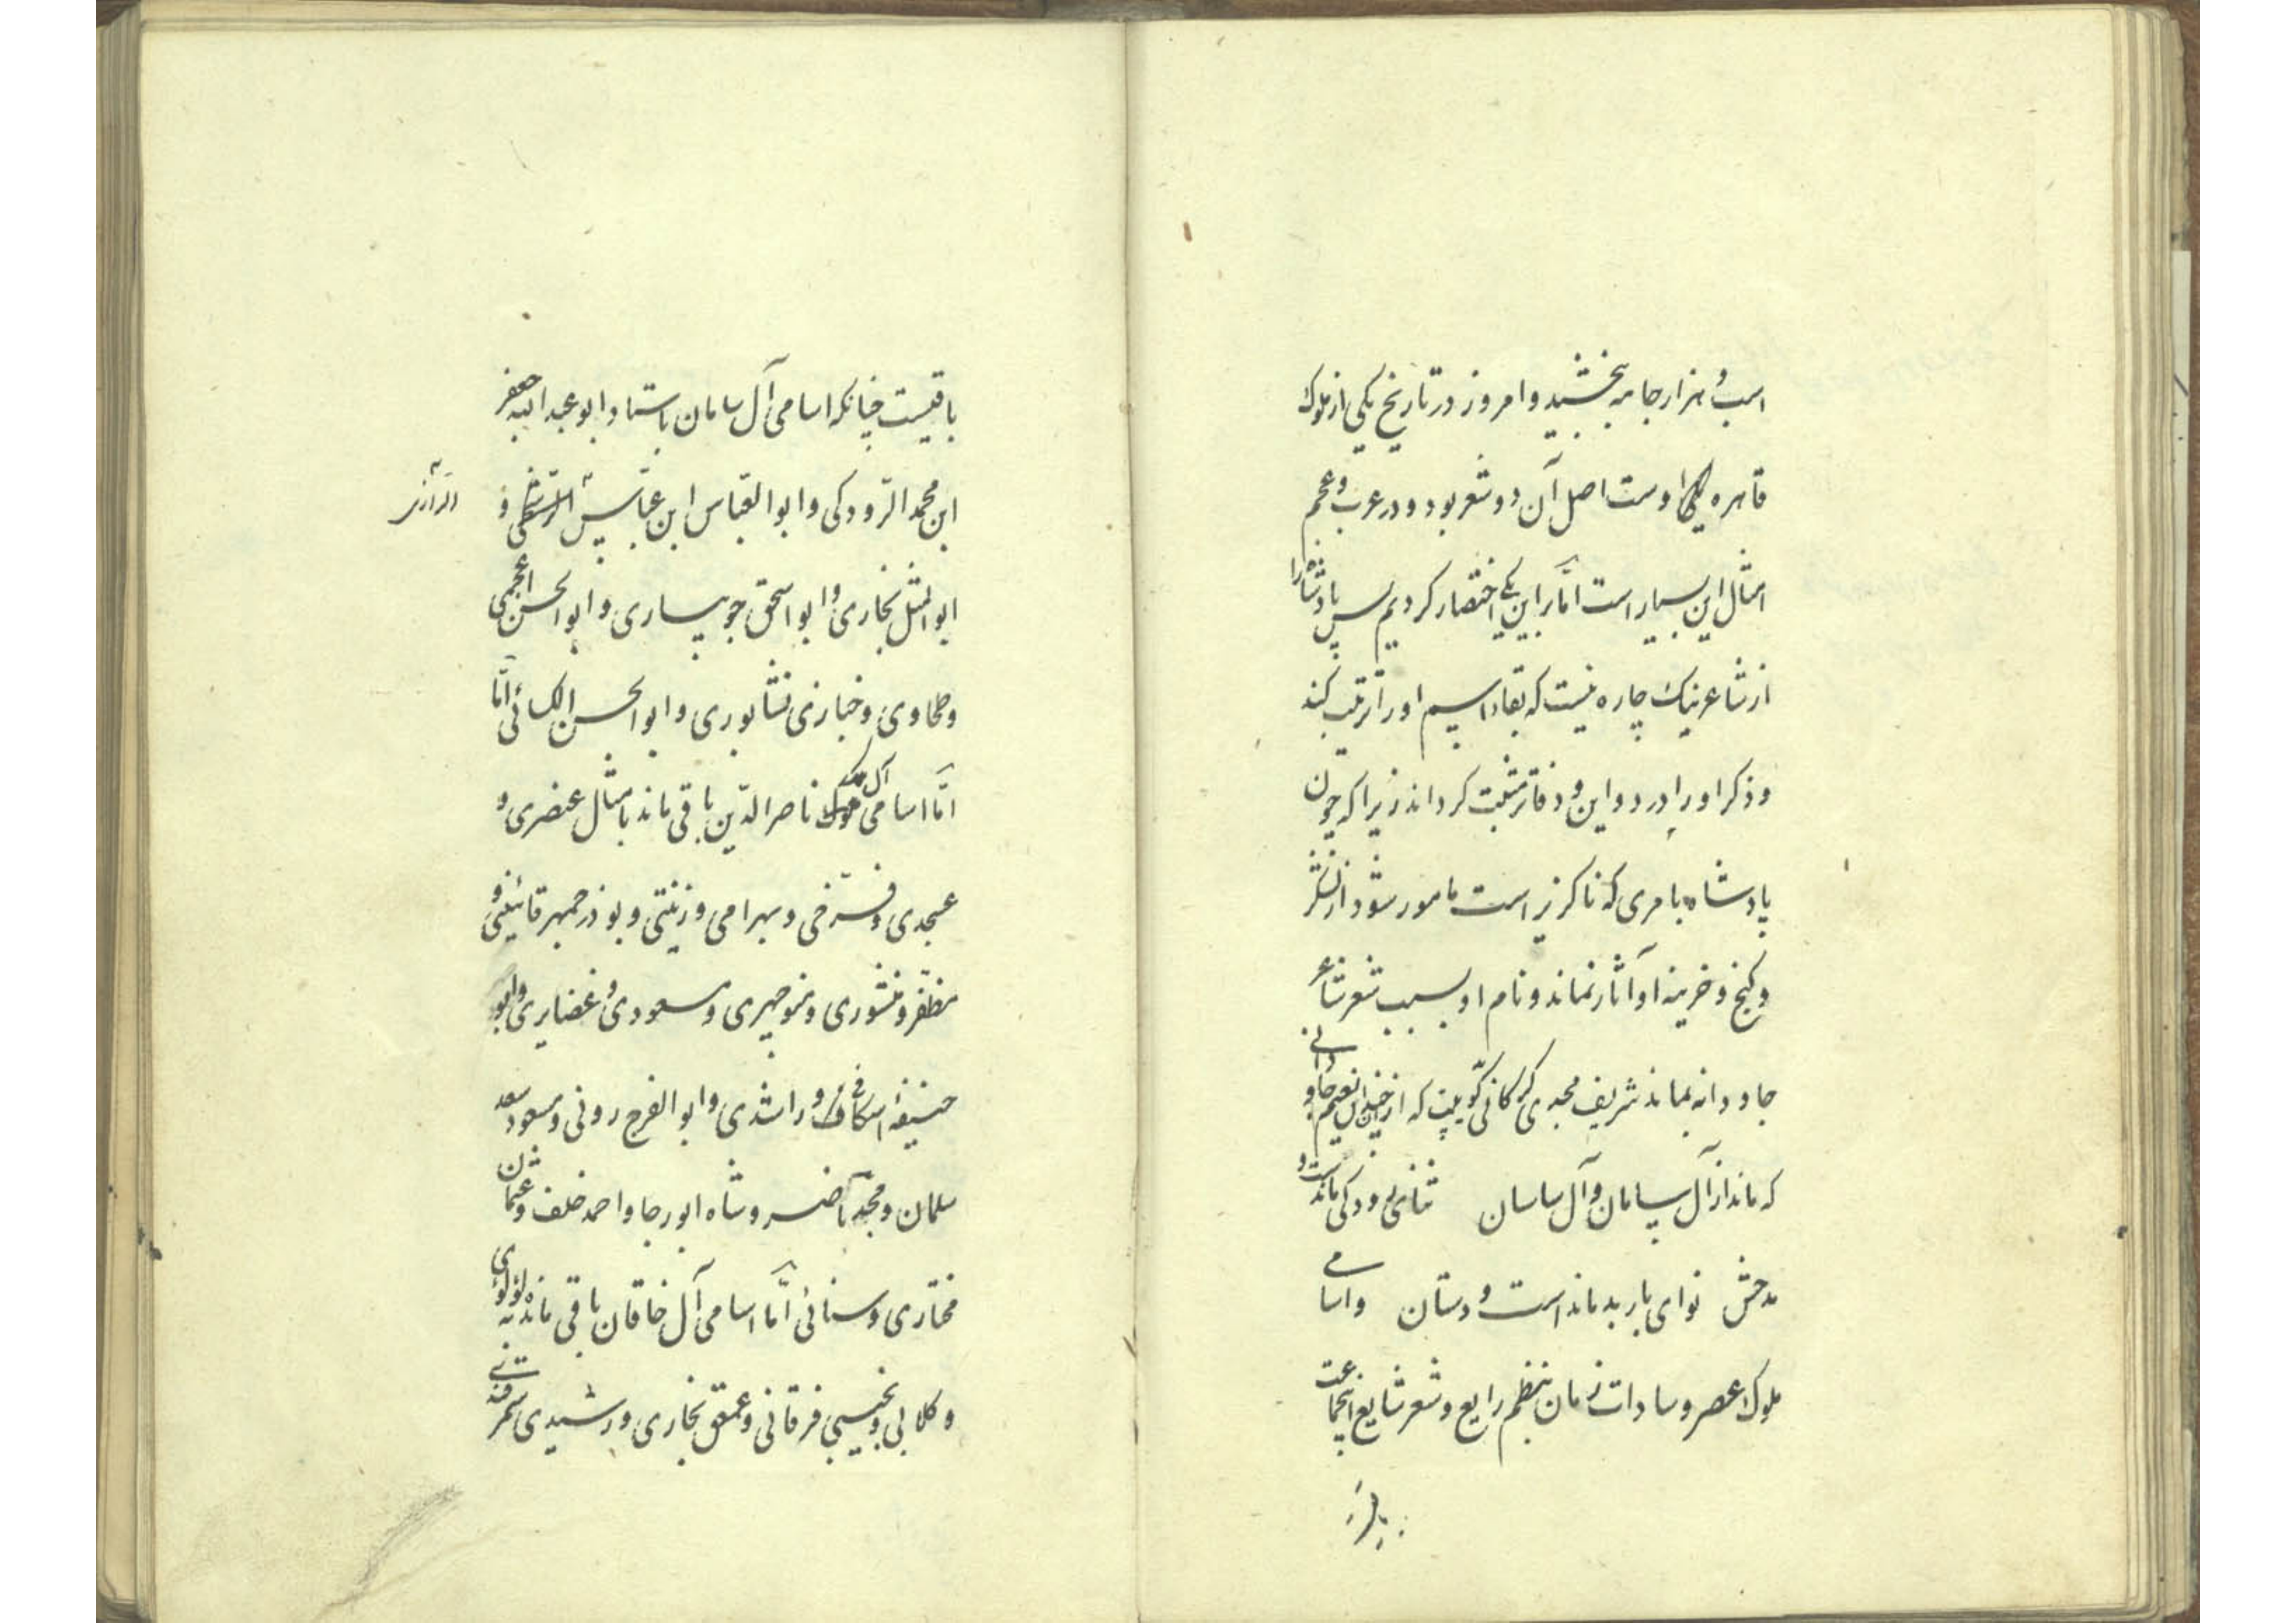 اسب و هزار جامه ببخشید و امروز در تاریخ یکی از ملوک
قاهره اوست اصل آن دو شعر بود و در عرب و عجم
امثال این بسیار است اما بر این یکی اختصار کردیم پس پادشاه را
از شاعر نیک چاره نیست که بقاء اسم او را ترتیب کند
و ذکر او را در دواوین و دفاتر مثبت گرداند زیرا که چون
پادشاه بامری که ناگزیر است مامور شود از لشکر
و گنج و خزینه او آثار نماند و نام او بسبب شعر شاعر
جاودانه بماند شریف مجدی گرگانی گوید بیت که از چندان نعیم جاودانی
که ماند از آل سامان و آل ساسان ثنای رودکی ماندست و
مدحش نوای باربد ماندست و دستان و اسامی
ملوک عصر و سادات زمان بنظم رایع و شعر شایع اینجماعت
باقیست
باقیست چنانکه اسامی آل سامان باستاد ابو عبدالله جعفر
ابن محمد الرودکی و ابو العباس ابن عباس و
الرازی
ابو المثل بخاری و ابو اسحق جویباری و ابو الحسن اعجمی
و طحاوی و خبازی نشابوری و ابو الحسن الکسائی اما
اما اسامی آل ناصر الدین باقی ماند بامثال عنصری و
عسجدی و فرخی و بهرامی و زینتی و بوذرجمهر قائینی و
مظفر و منشوری و منوچهری و مسعودی و غضایری و ابو
حنیفه اسکافی و راشدی و ابو الفرج رونی و مسعود سعد
سلمان و محمد ناصر و شاه ابو رجا و احمد خلف و عثمان
مختاری و سنائی اما اسامی آل خاقان باقی مانده به لؤلؤی
و کلابی و نجیبی فرقانی و عمعق بخاری و رشیدی سمرقندی